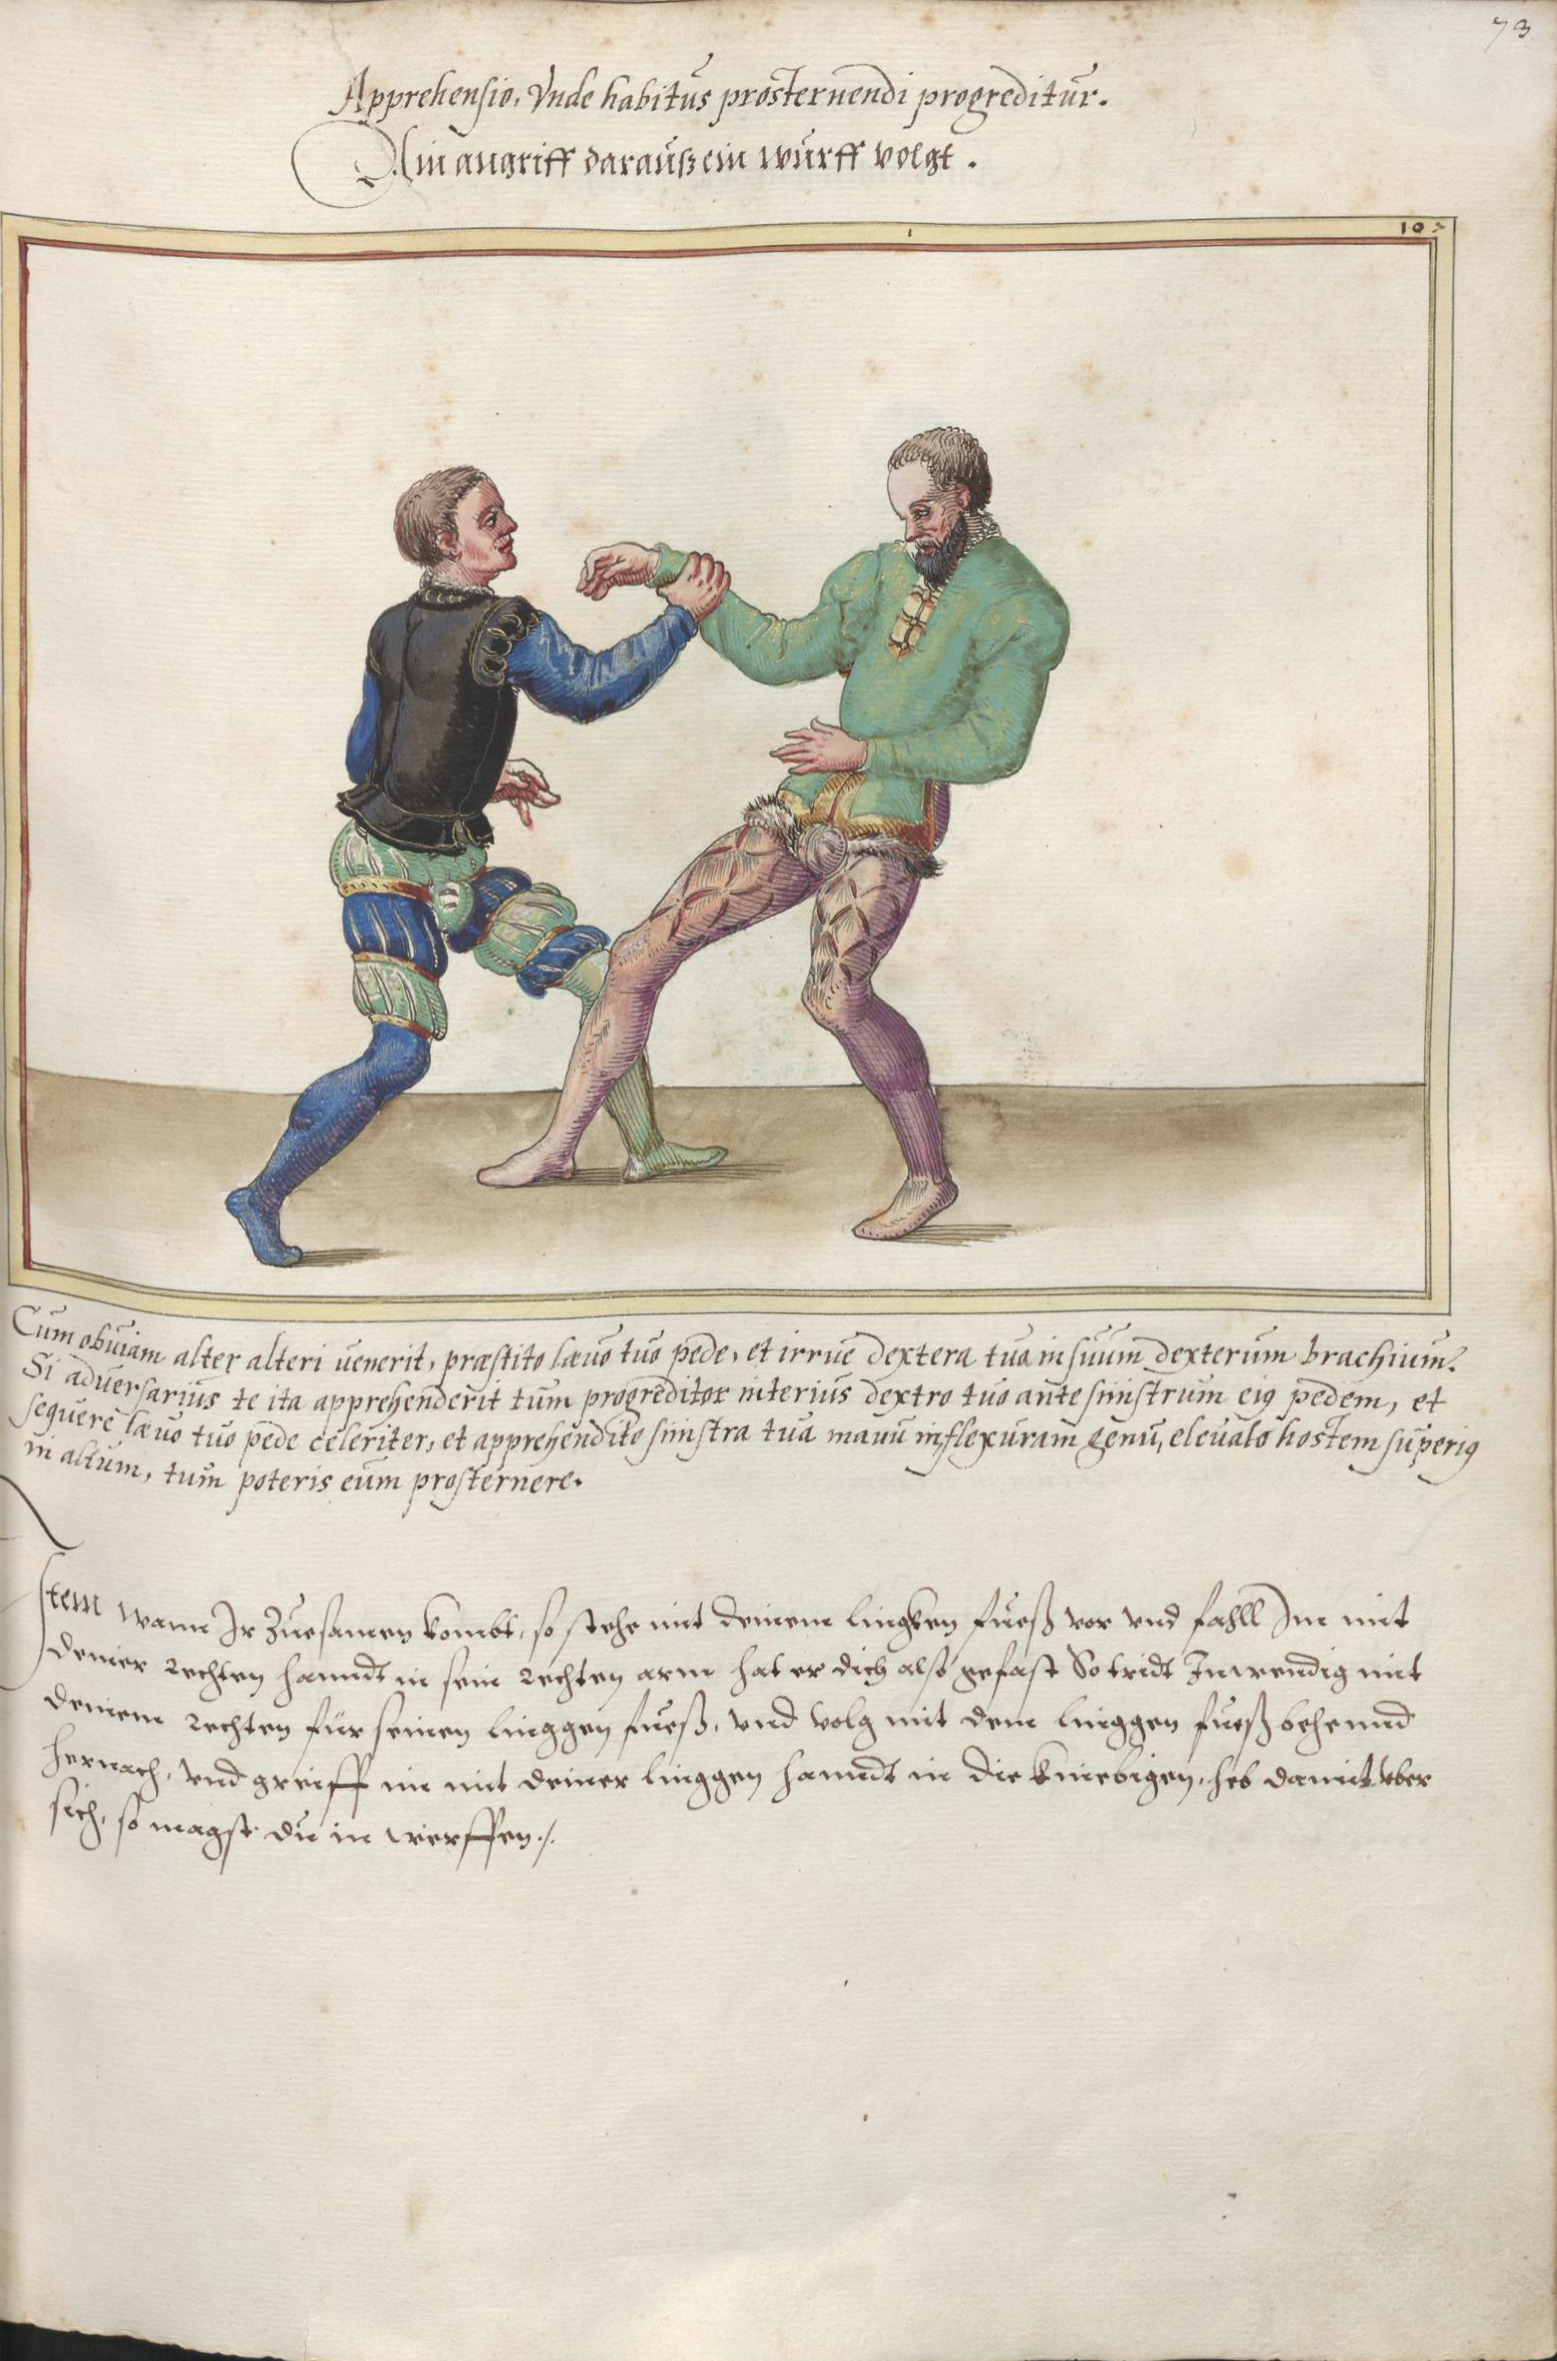 73
Apprehensio, Vnde habitus prosternendi progreditur.
Ain angriff darauß ein wurff volgt.
Cum obuiam alter alteri uenerit, præstito læuo tuo pede, et irrue dextera tua in suum dexterum brachium.
Si aduersarius te ita apprehenderit tum progreditor interius dextro tuo ante sinistrum eius pedem, et
sequere læuo tuo pede celeriter, et apprehendito sinistra tua manu in flexuram genu, eleuato hostem superius
in altum, tum poteris eum prosternere.
Item wann Ir Zuesamen kombt, so stehe mit deinem lingken fueß vor vnd fahll Im mit
deiner rechten hanndt in sein rechten arm hat er dich also gefast So tridt Inwendig mit
deinem rechten für seinen linggen fueß, vnd volg mit dem linggen fueß behennd
hernach, vnd greiff im mit deiner linggen hanndt in die kniebigen, heb damit vber
sich, so magst du in werffen./.